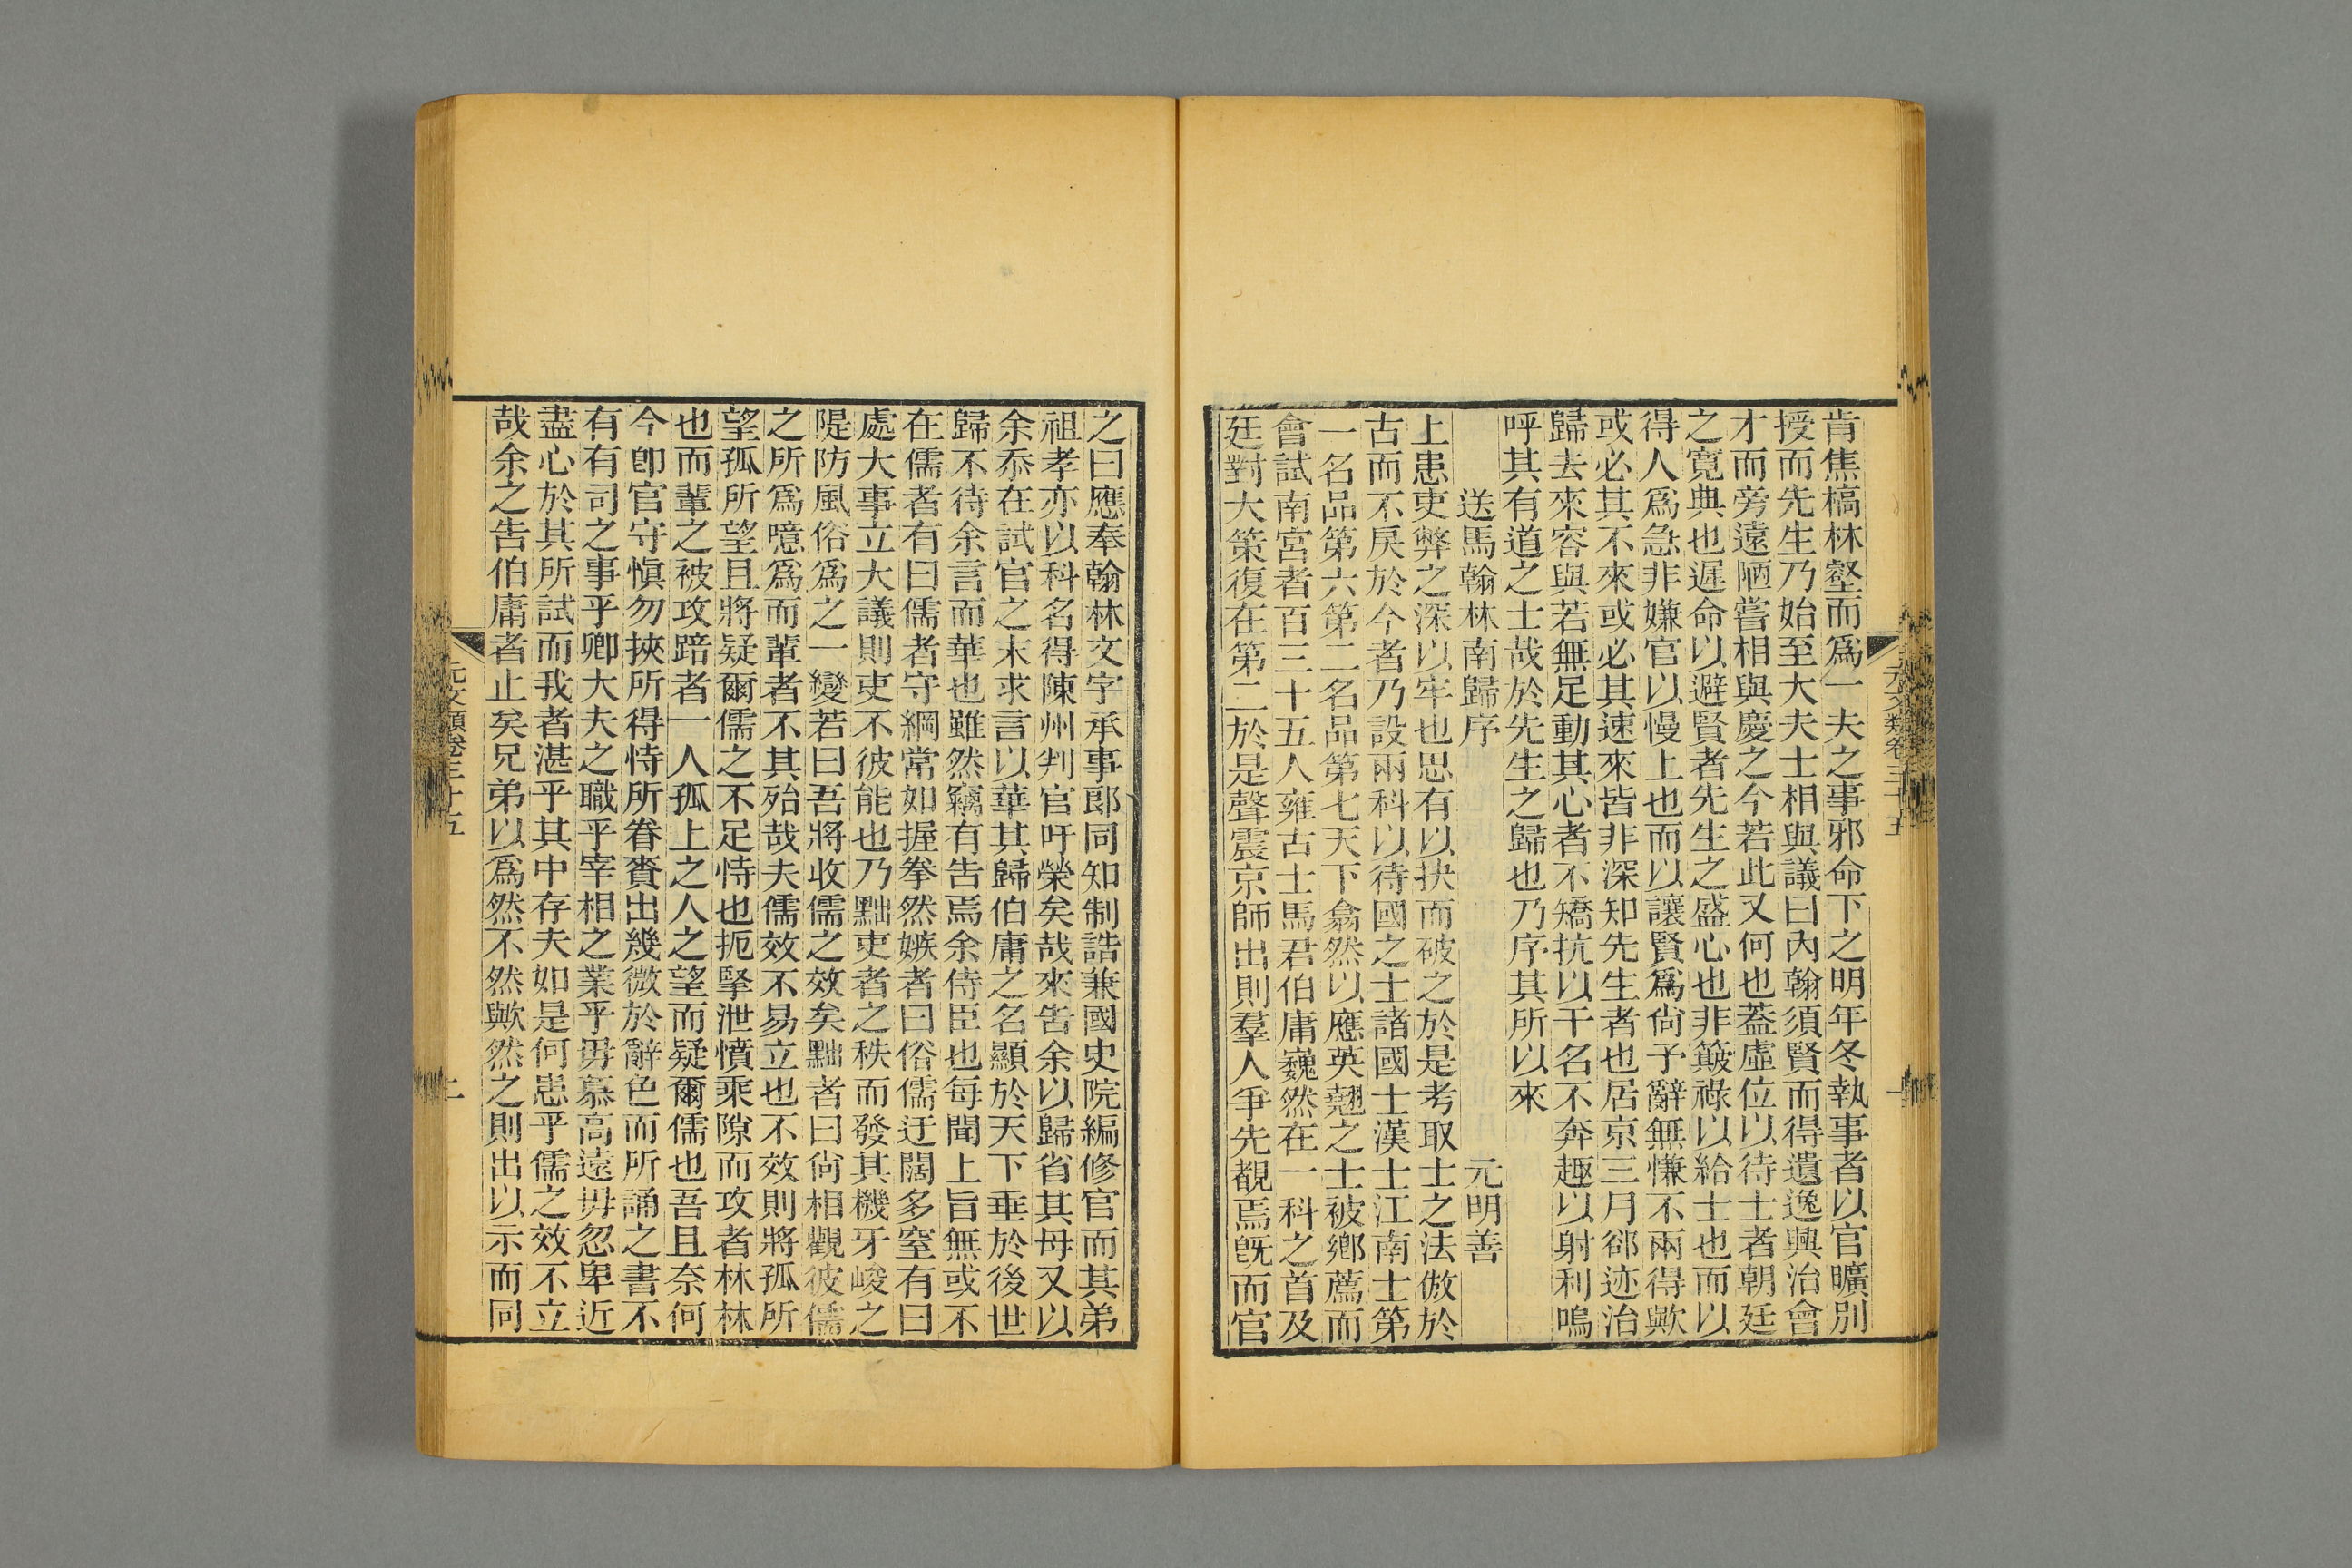 肯焦槁林壑而爲一夫之事邪命下之明年冬執事者以官曠別
授而先生乃始至大夫士相與議曰內翰須賢而得遺逸興治會
才而旁遠陋嘗相與慶之今若此又何也蓋虛位以待士者朝廷
之寬典也遲命以避賢者先生之盛心也非簸祿以給士也而以
得人爲急非嫌官以慢上也而以讓賢爲尙予辭無慊不兩得歟
或必其不來或必其速來皆非深知先生者也居京三月郤迹治
歸去來容與若無足動其心者不矯抗以干名不奔趣以射利嗚
呼其有道之士哉於先生之歸也乃序其所以來
送馬翰林南歸序 元明善
上患吏弊之深以牢也思有以抉而破之於是考取士之法倣於
古而不戾於今者乃設兩科以待國之士諸國士漢士江南士第
一名品第六第二名品第七天下翕然以應英翹之士被鄉薦而
會試南宮者百三十五人雍古士馬君伯庸巍然在一科之首及
廷對大策復在第二於是聲震京師出則羣人爭先覩焉旣而官
之曰應奉翰林文字承事郎同知制誥兼國史院編修官而其弟
祖孝亦以科名得陳州判官吁榮矣哉來告余以歸省其母又以
余忝在試官之末求言以華其歸伯庸之名顯於天下垂於後世
歸不待余言而華也雖然竊有告焉余侍臣也每聞上旨無或不
在儒者有曰儒者守綱常如握拳然嫉者曰俗儒迂闊多窒有曰
處大事立大議則吏不彼能也乃黜吏者之秩而發其機牙峻之
隄防風俗爲之一變若曰吾將收儒之效矣黜者曰尙相觀彼儒
之所爲噫爲而輩者不其殆哉夫儒效不易立也不效則將孤所
望孤所望且將疑爾儒之不足恃也扼掔泄憤乘隙而攻者林林
也而輩之被攻踣者一人孤上之人之望而疑爾儒也吾且奈何
今卽官守愼勿挾所得恃所眷賚出幾微於辭色而所誦之書不
有有司之事乎卿大夫之職乎宰相之業乎毋慕高遠毋忽卑近
盡心於其所試而我者湛乎其中存夫如是何患乎儒之效不立
哉余之告伯庸者止矣兄弟以爲然不然歟然之則出以示而同
元文類卷三十五 二